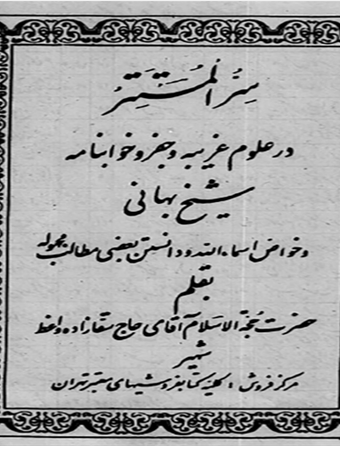 سرّ المستتر
در علوم غریبه و جفر و خوابنامه
شیخ بهائی
و خواص اسماء الله و دانستن بعضی مطالب مجهوله
بقلم
حضرت حجّة الاسلام آقای حاج سقازاده واعظ
شهیر
مرکز فروش: کلیه کتابفروشیهای معتبر تهران